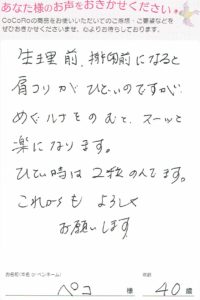 あなた様のお声をおきかせください
CoCoRoの商品をお使いいただいてのご感想・ご要望などを
ぜひお聞かせくださいませ。心よりお待ちしております。
生理前、排卵前になると
肩コリがひどいのですが、
めぐルナをのむと、スーッと
楽になります。
ひどい時は2粒のんでます。
これからも よろしく
お願いします
お名前(本名 or ペンネーム)
年齢
ペコ 様 40歳